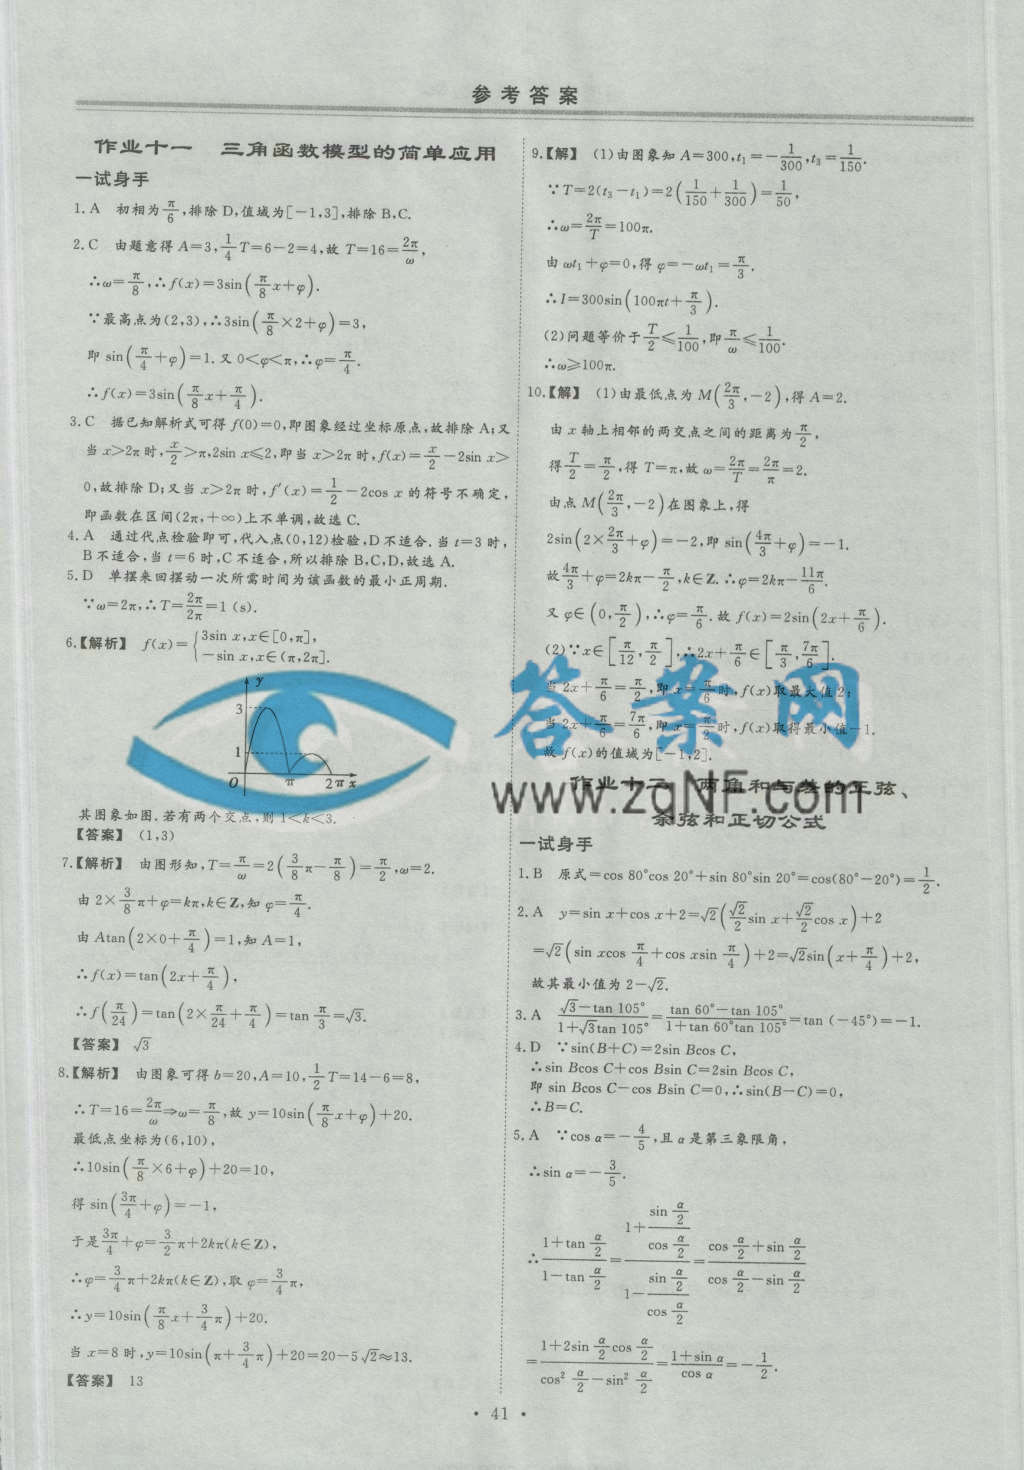 参考答案
作业十一 三角函数模型的简单应用
一试身手
1. A 初相为π/6,排除D,值域为[-1,3],排除B,C.
2. C 由题意得A=3,1/4T=6-2=4,故T=16=2π/ω,
∴ω=π/8,∴f(x)=3sin(π/8x+φ).
∵最高点为(2,3),∴3sin(π/8×2+φ)=3,
即sin(π/4+φ)=1.又0<φ<π,∴φ=π/4.
∴f(x)=3sin(π/8x+π/4).
3. C 据已知解析式可得f(0)=0,即图象经过坐标原点,故排除A;又
当x>2π时,x/2>π,2sin x≤2,即当x>2π时,f(x)=x/2-2sin x>
0,故排除D;又当x>2π时,f′(x)=1/2-2cos x的符号不确定,
即函数在区间(2π,+∞)上不单调,故选C.
4. A 通过代点检验即可,代入点(0,12)检验,D不适合.当t=3时,
B不适合,当t=6时,C不适合,所以排除B,C,D,故选A.
5. D 单摆来回摆动一次所需时间为该函数的最小正周期.
∵ω=2π,∴T=2π/2π=1 (s).
6.【解析】 f(x)={3sin x,x∈[0,π],
-sin x,x∈(π,2π].
y
3
1
O π 2π x
其图象如图.若有两个交点,则1<k<3.
【答案】 (1,3)
7.【解析】 由图形知,T=π/ω=2(3/8π-π/8)=π/2,ω=2.
由2×3/8π+φ=kπ,k∈Z,知φ=π/4.
由Atan(2×0+π/4)=1,知A=1,
∴f(x)=tan(2x+π/4),
∴f(π/24)=tan(2×π/24+π/4)=tan π/3=√3.
【答案】 √3
8.【解析】 由图象可得b=20,A=10,1/2T=14-6=8,
∴T=16=2π/ω⇒ω=π/8,故y=10sin(π/8x+φ)+20.
最低点坐标为(6,10),
∴10sin(π/8×6+φ)+20=10,
得sin(3π/4+φ)=-1,
于是3π/4+φ=3/2π+2kπ(k∈Z),
∴φ=3/4π+2kπ(k∈Z),取φ=3/4π,
∴y=10sin(π/8x+3/4π)+20.
当x=8时,y=10sin(π+3/4π)+20=20-5√2≈13.
【答案】 13
9.【解】 (1)由图象知A=300,t₁=-1/300,t₃=1/150.
∵T=2(t₃-t₁)=2(1/150+1/300)=1/50,
∴ω=2π/T=100π.
由ωt₁+φ=0,得φ=-ωt₁=π/3.
∴I=300sin(100πt+π/3).
(2)问题等价于T/2≤1/100,即π/ω≤1/100.
∴ω≥100π.
10.【解】 (1)由最低点为M(2π/3,-2),得A=2.
由x轴上相邻的两交点之间的距离为π/2,
得T/2=π/2,得T=π,故ω=2π/T=2π/π=2.
由点M(2π/3,-2)在图象上,得
2sin(2×2π/3+φ)=-2,即sin(4π/3+φ)=-1.
故4π/3+φ=2kπ-π/2,k∈Z.∴φ=2kπ-11π/6.
又φ∈(0,π/2),∴φ=π/6.故f(x)=2sin(2x+π/6).
(2)∵x∈[π/12,π/2],∴2x+π/6∈[π/3,7π/6].
当2x+π/6=π/2,即x=π/6时,f(x)取最大值2;
当2x+π/6=7π/6,即x=π/2时,f(x)取得最小值-1.
故f(x)的值域为[-1,2].
答案网
www.zqNF.com
作业十二 两角和与差的正弦、
余弦和正切公式
一试身手
1. B 原式=cos 80°cos 20°+sin 80°sin 20°=cos(80°-20°)=1/2.
2. A y=sin x+cos x+2=√2(√2/2sin x+√2/2cos x)+2
=√2(sin xcos π/4+cos xsin π/4)+2=√2sin(x+π/4)+2,
故其最小值为2-√2.
3. A (√3-tan 105°)/(1+√3tan 105°)=(tan 60°-tan 105°)/(1+tan 60°tan 105°)=tan (-45°)=-1.
4. D ∵sin(B+C)=2sin Bcos C,
∴sin Bcos C+cos Bsin C=2sin Bcos C,
即sin Bcos C-cos Bsin C=0,∴sin(B-C)=0,
∴B=C.
5. A ∵cos α=-4/5,且α是第三象限角,
∴sin α=-3/5.
∴(1+tan α/2)/(1-tan α/2)=(1+(sin α/2)/(cos α/2))/(1-(sin α/2)/(cos α/2))=(cos α/2+sin α/2)/(cos α/2-sin α/2)
=(1+2sin α/2cos α/2)/(cos² α/2-sin² α/2)=(1+sin α)/(cos α)=-1/2.
• 41 •